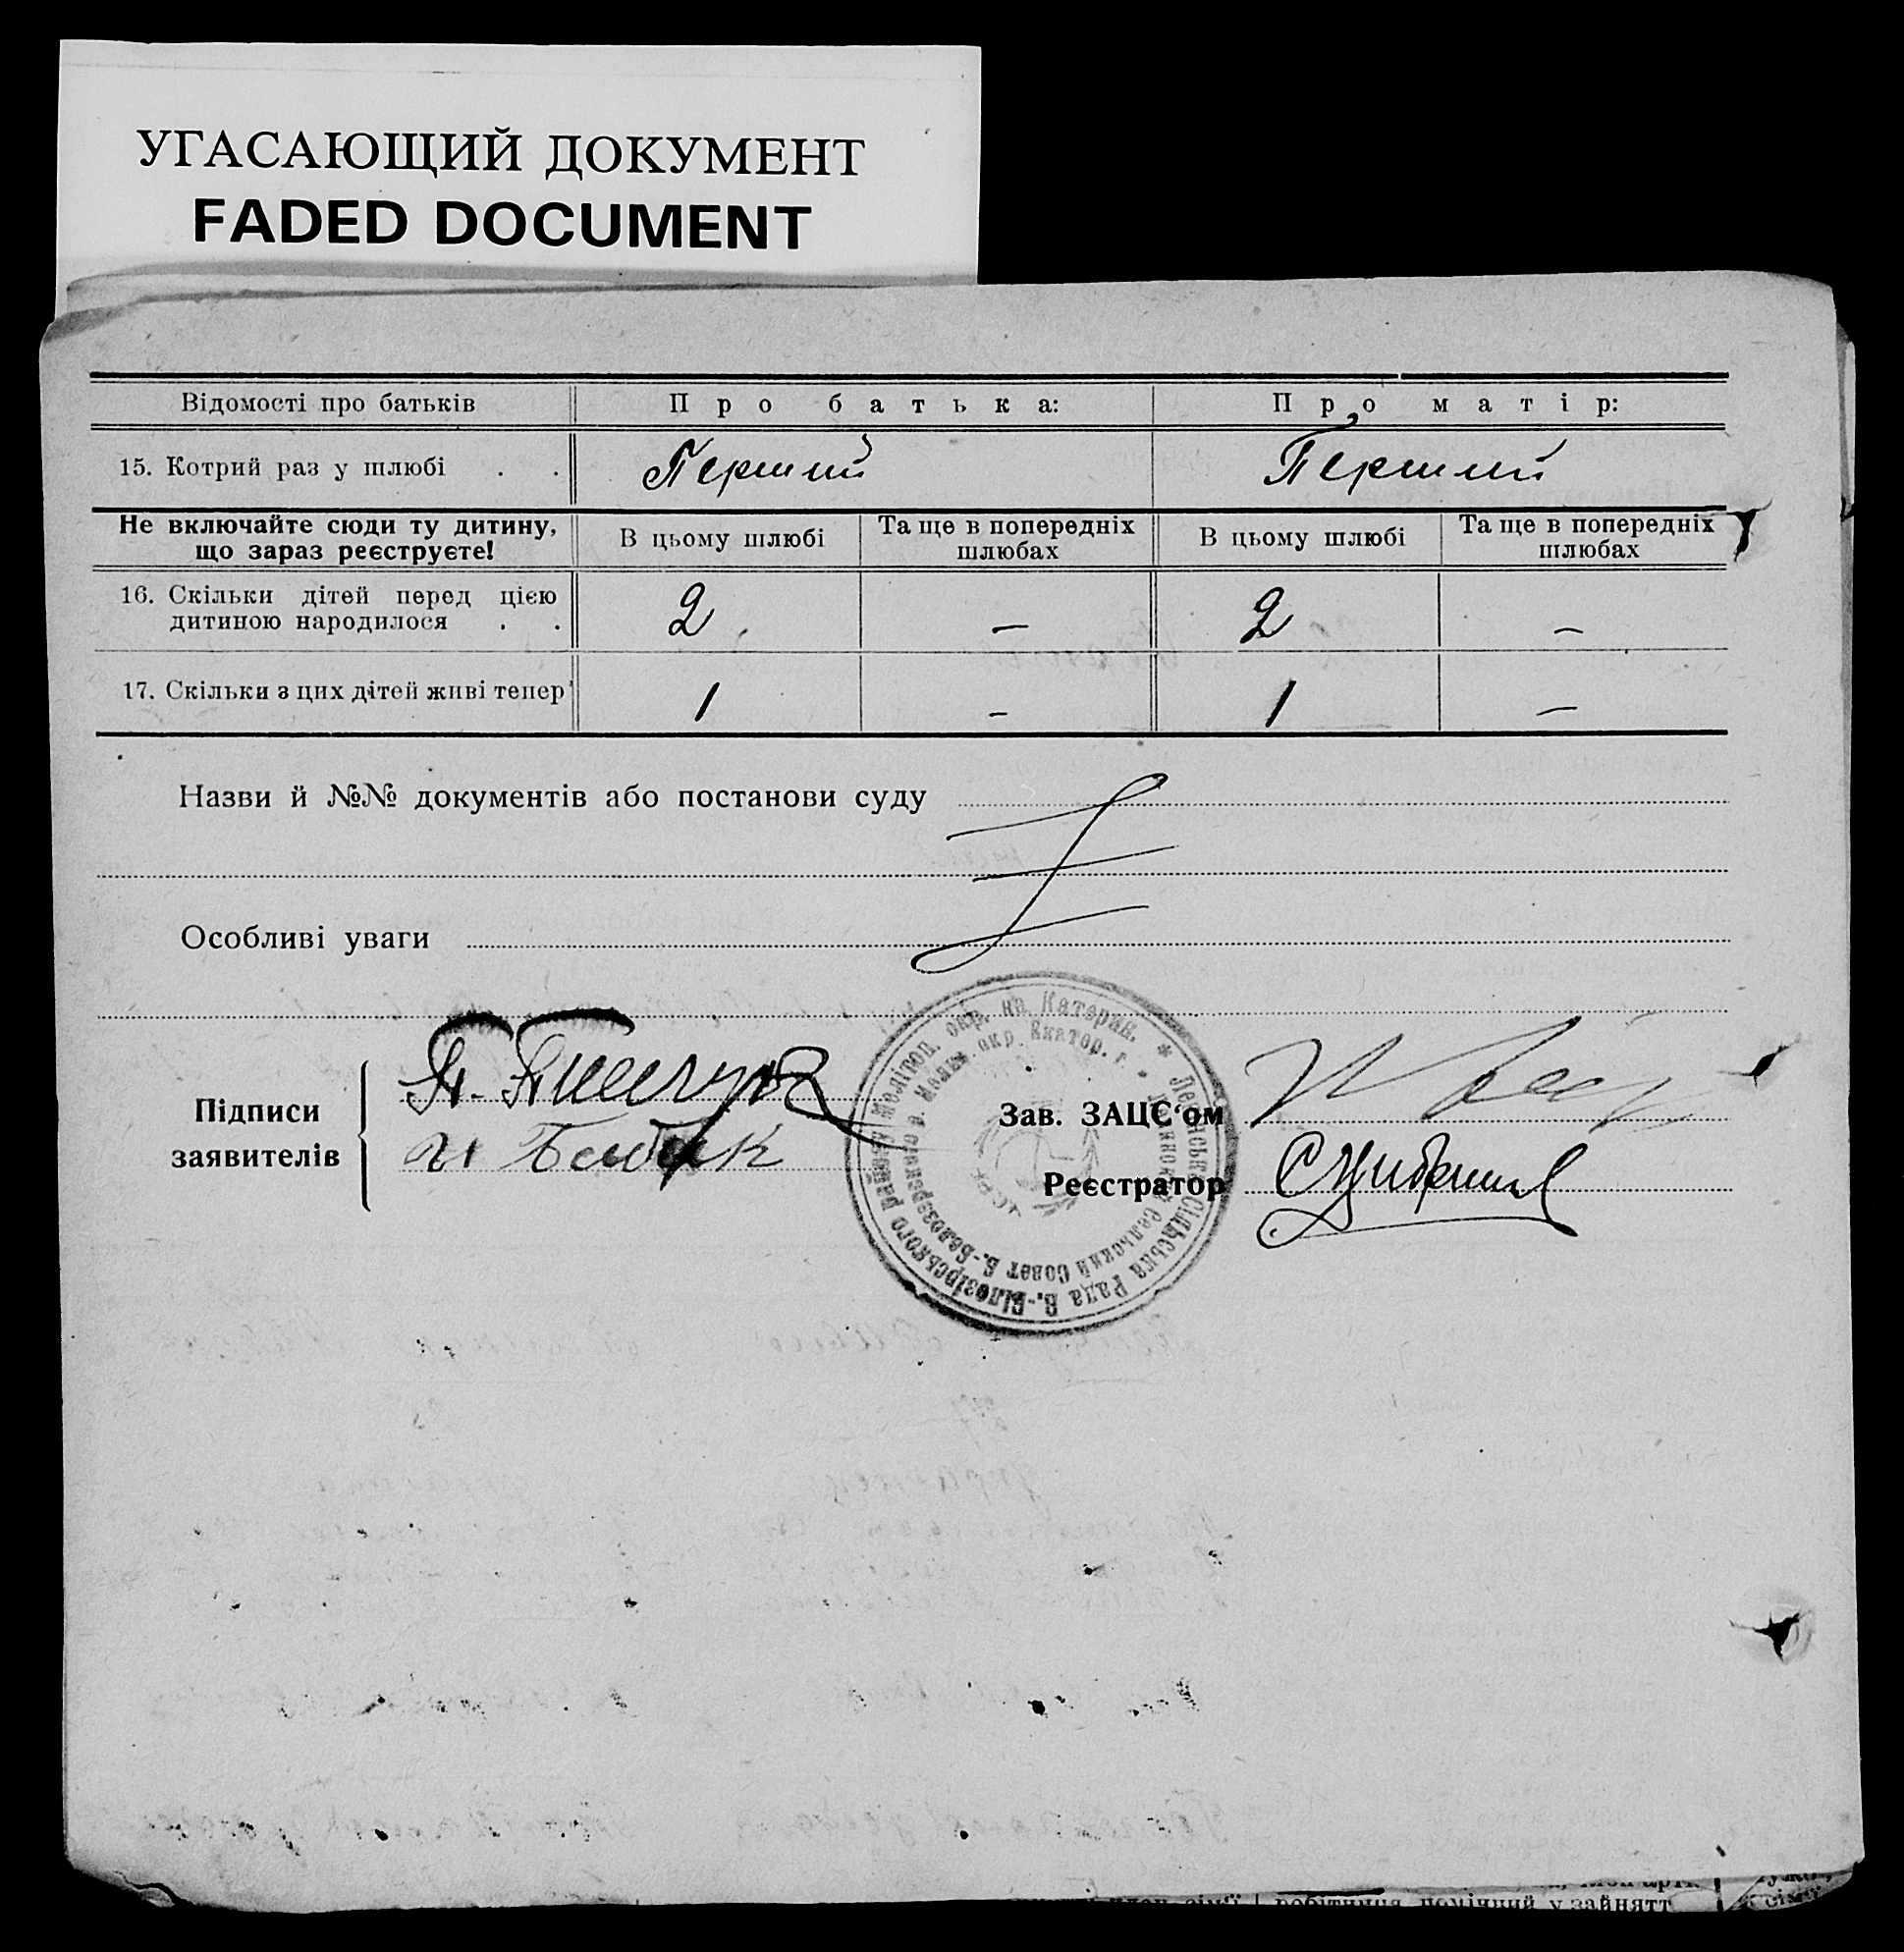 УГАСАЮЩИЙ ДОКУМЕНТ
FADED DOCUMENT
Відомості про батьків Про батька: Про матір:
15. Котрий раз у шлюбі . . Перший Перший
Не включайте сюди ту дитину, що зараз реєструєте! В цьому шлюбі Та ще в попередніх шлюбах В цьому шлюбі Та ще в попередніх шлюбах
16. Скільки дітей перед цією
дитиною народилося . . 2 — 2 —
17. Скільки з цих дітей живі тепер 1 — 1 —
Назви й №№ документів або постанови суду
Особливі уваги
Підписи
заявителів
Зав. ЗАЦС‘ом
Реєстратор
Сільська Рада В.-Білозірського району Меліт оп. окр. на Катерин.
Сельский Совет Б.-Белозерского р. окр. Екатор. г.
робітниця, помічний у занятт